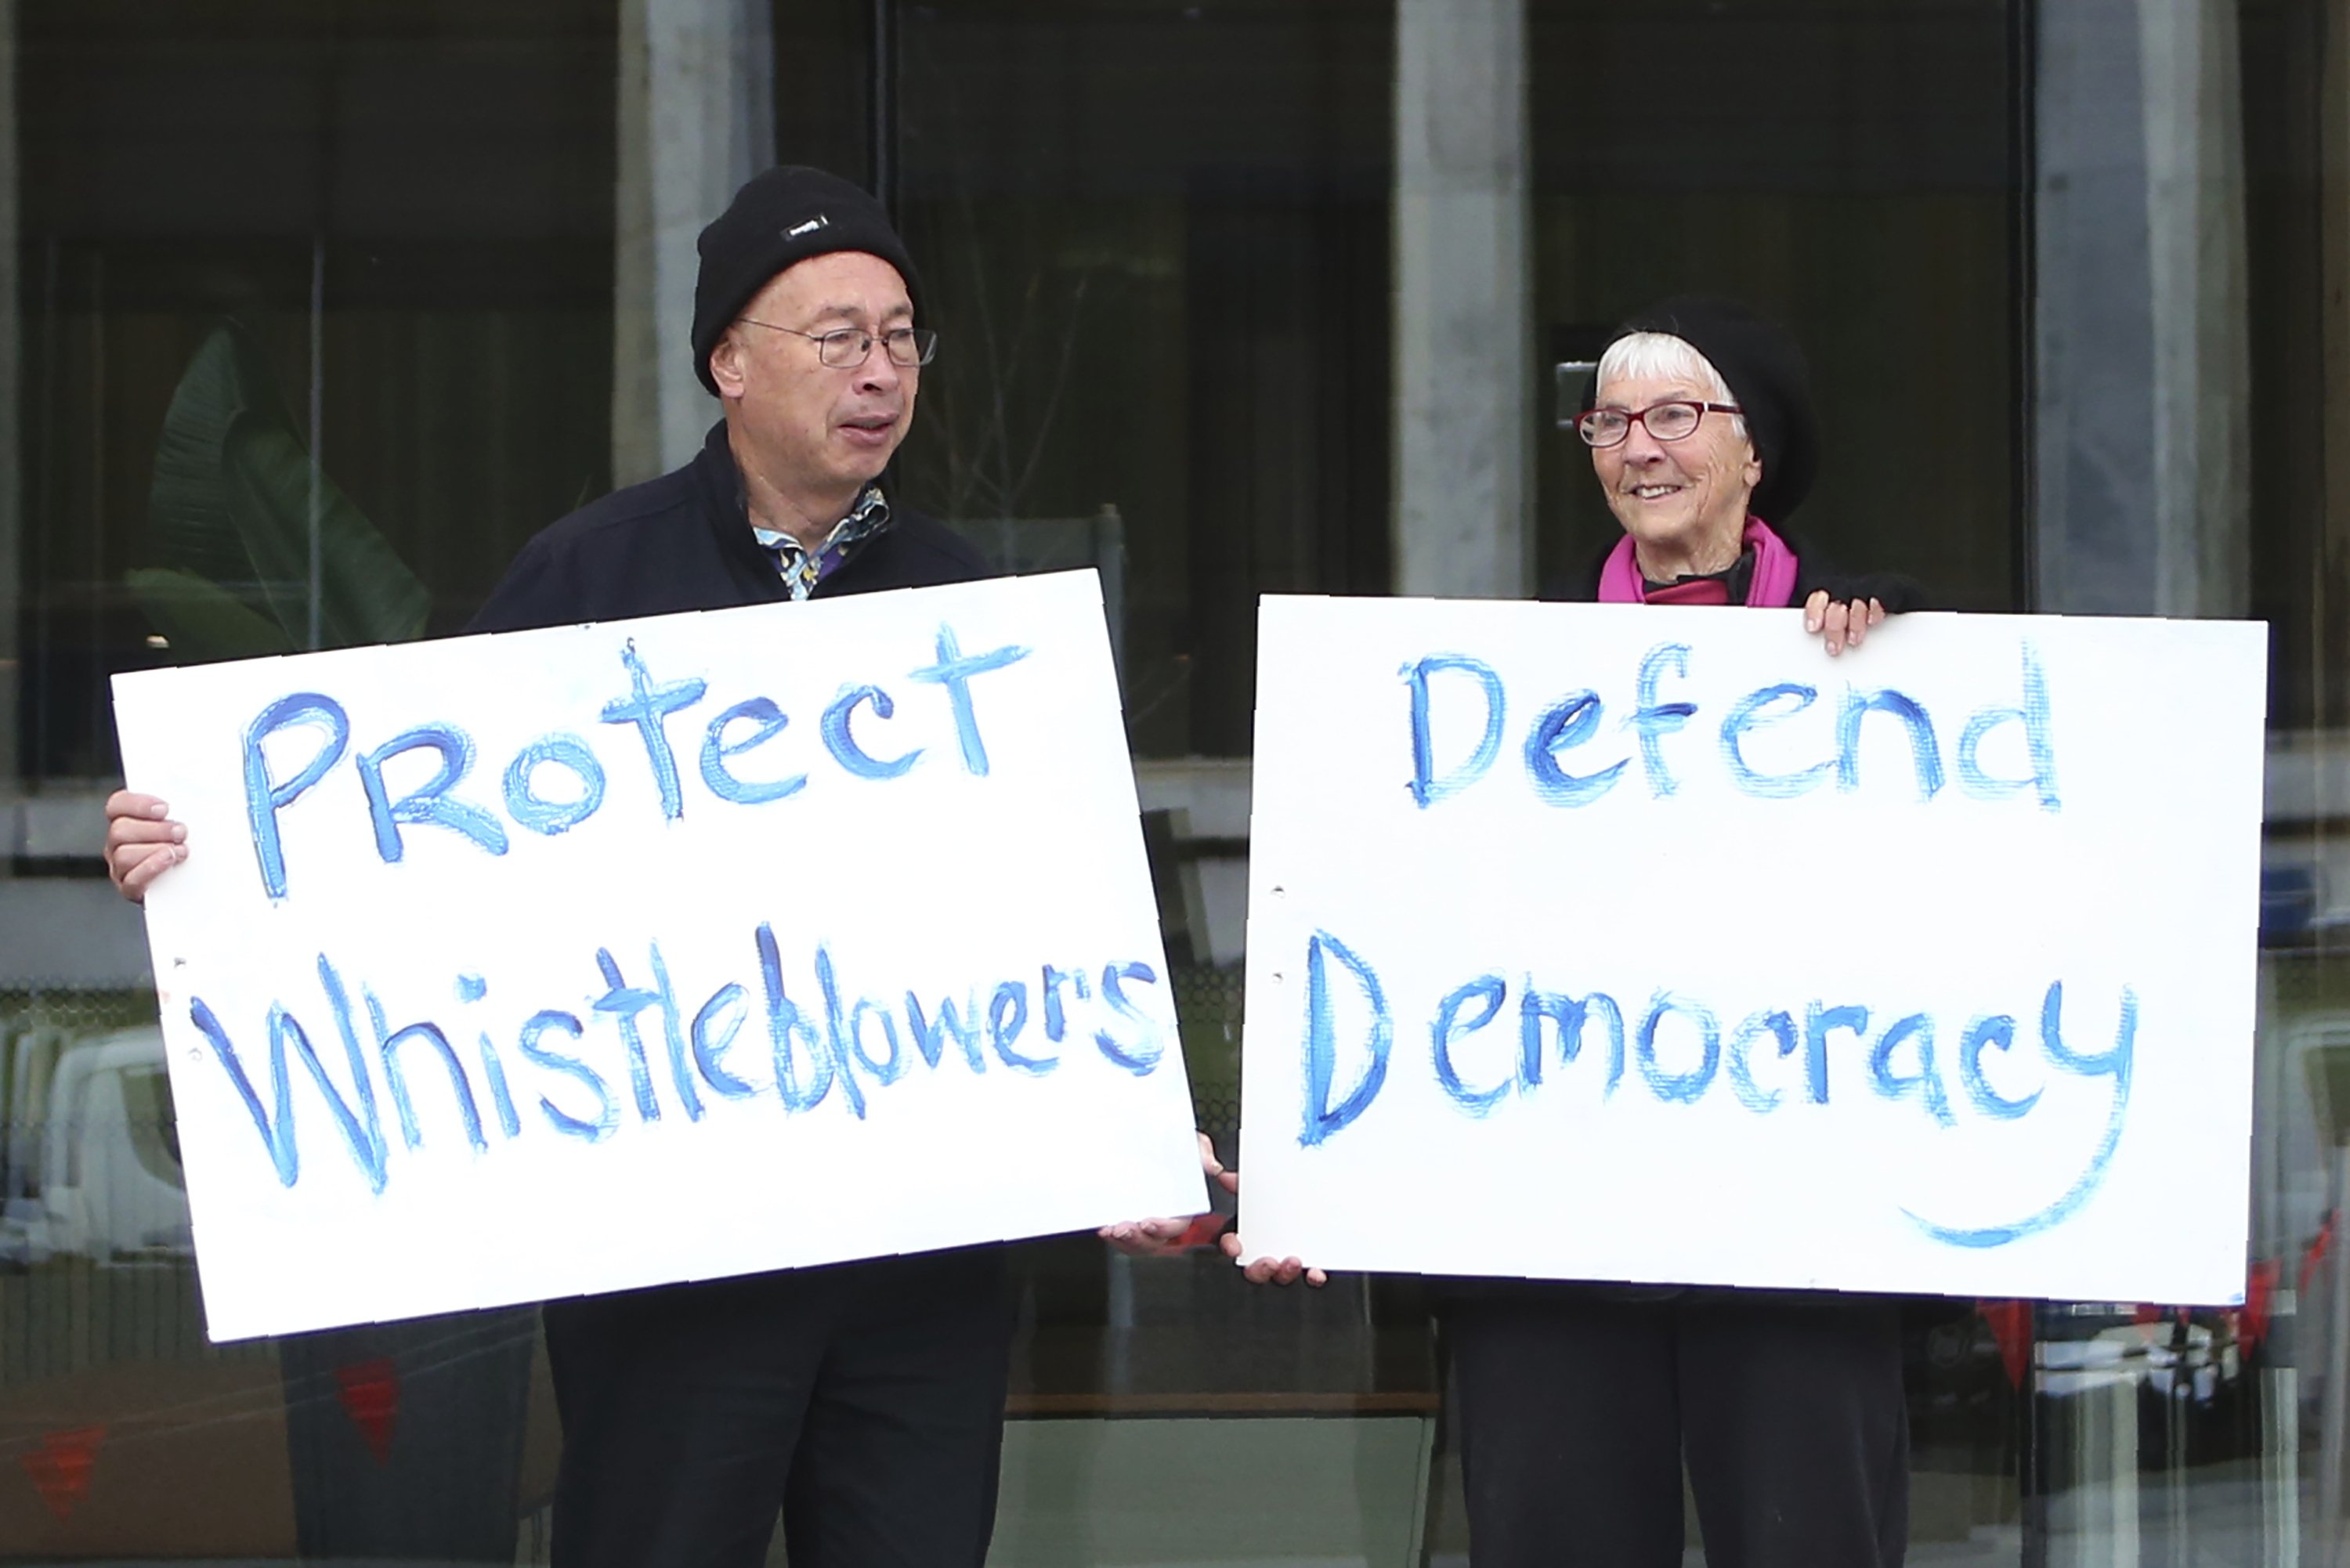 PRotect
Whistleblower's
Defend
Democracy